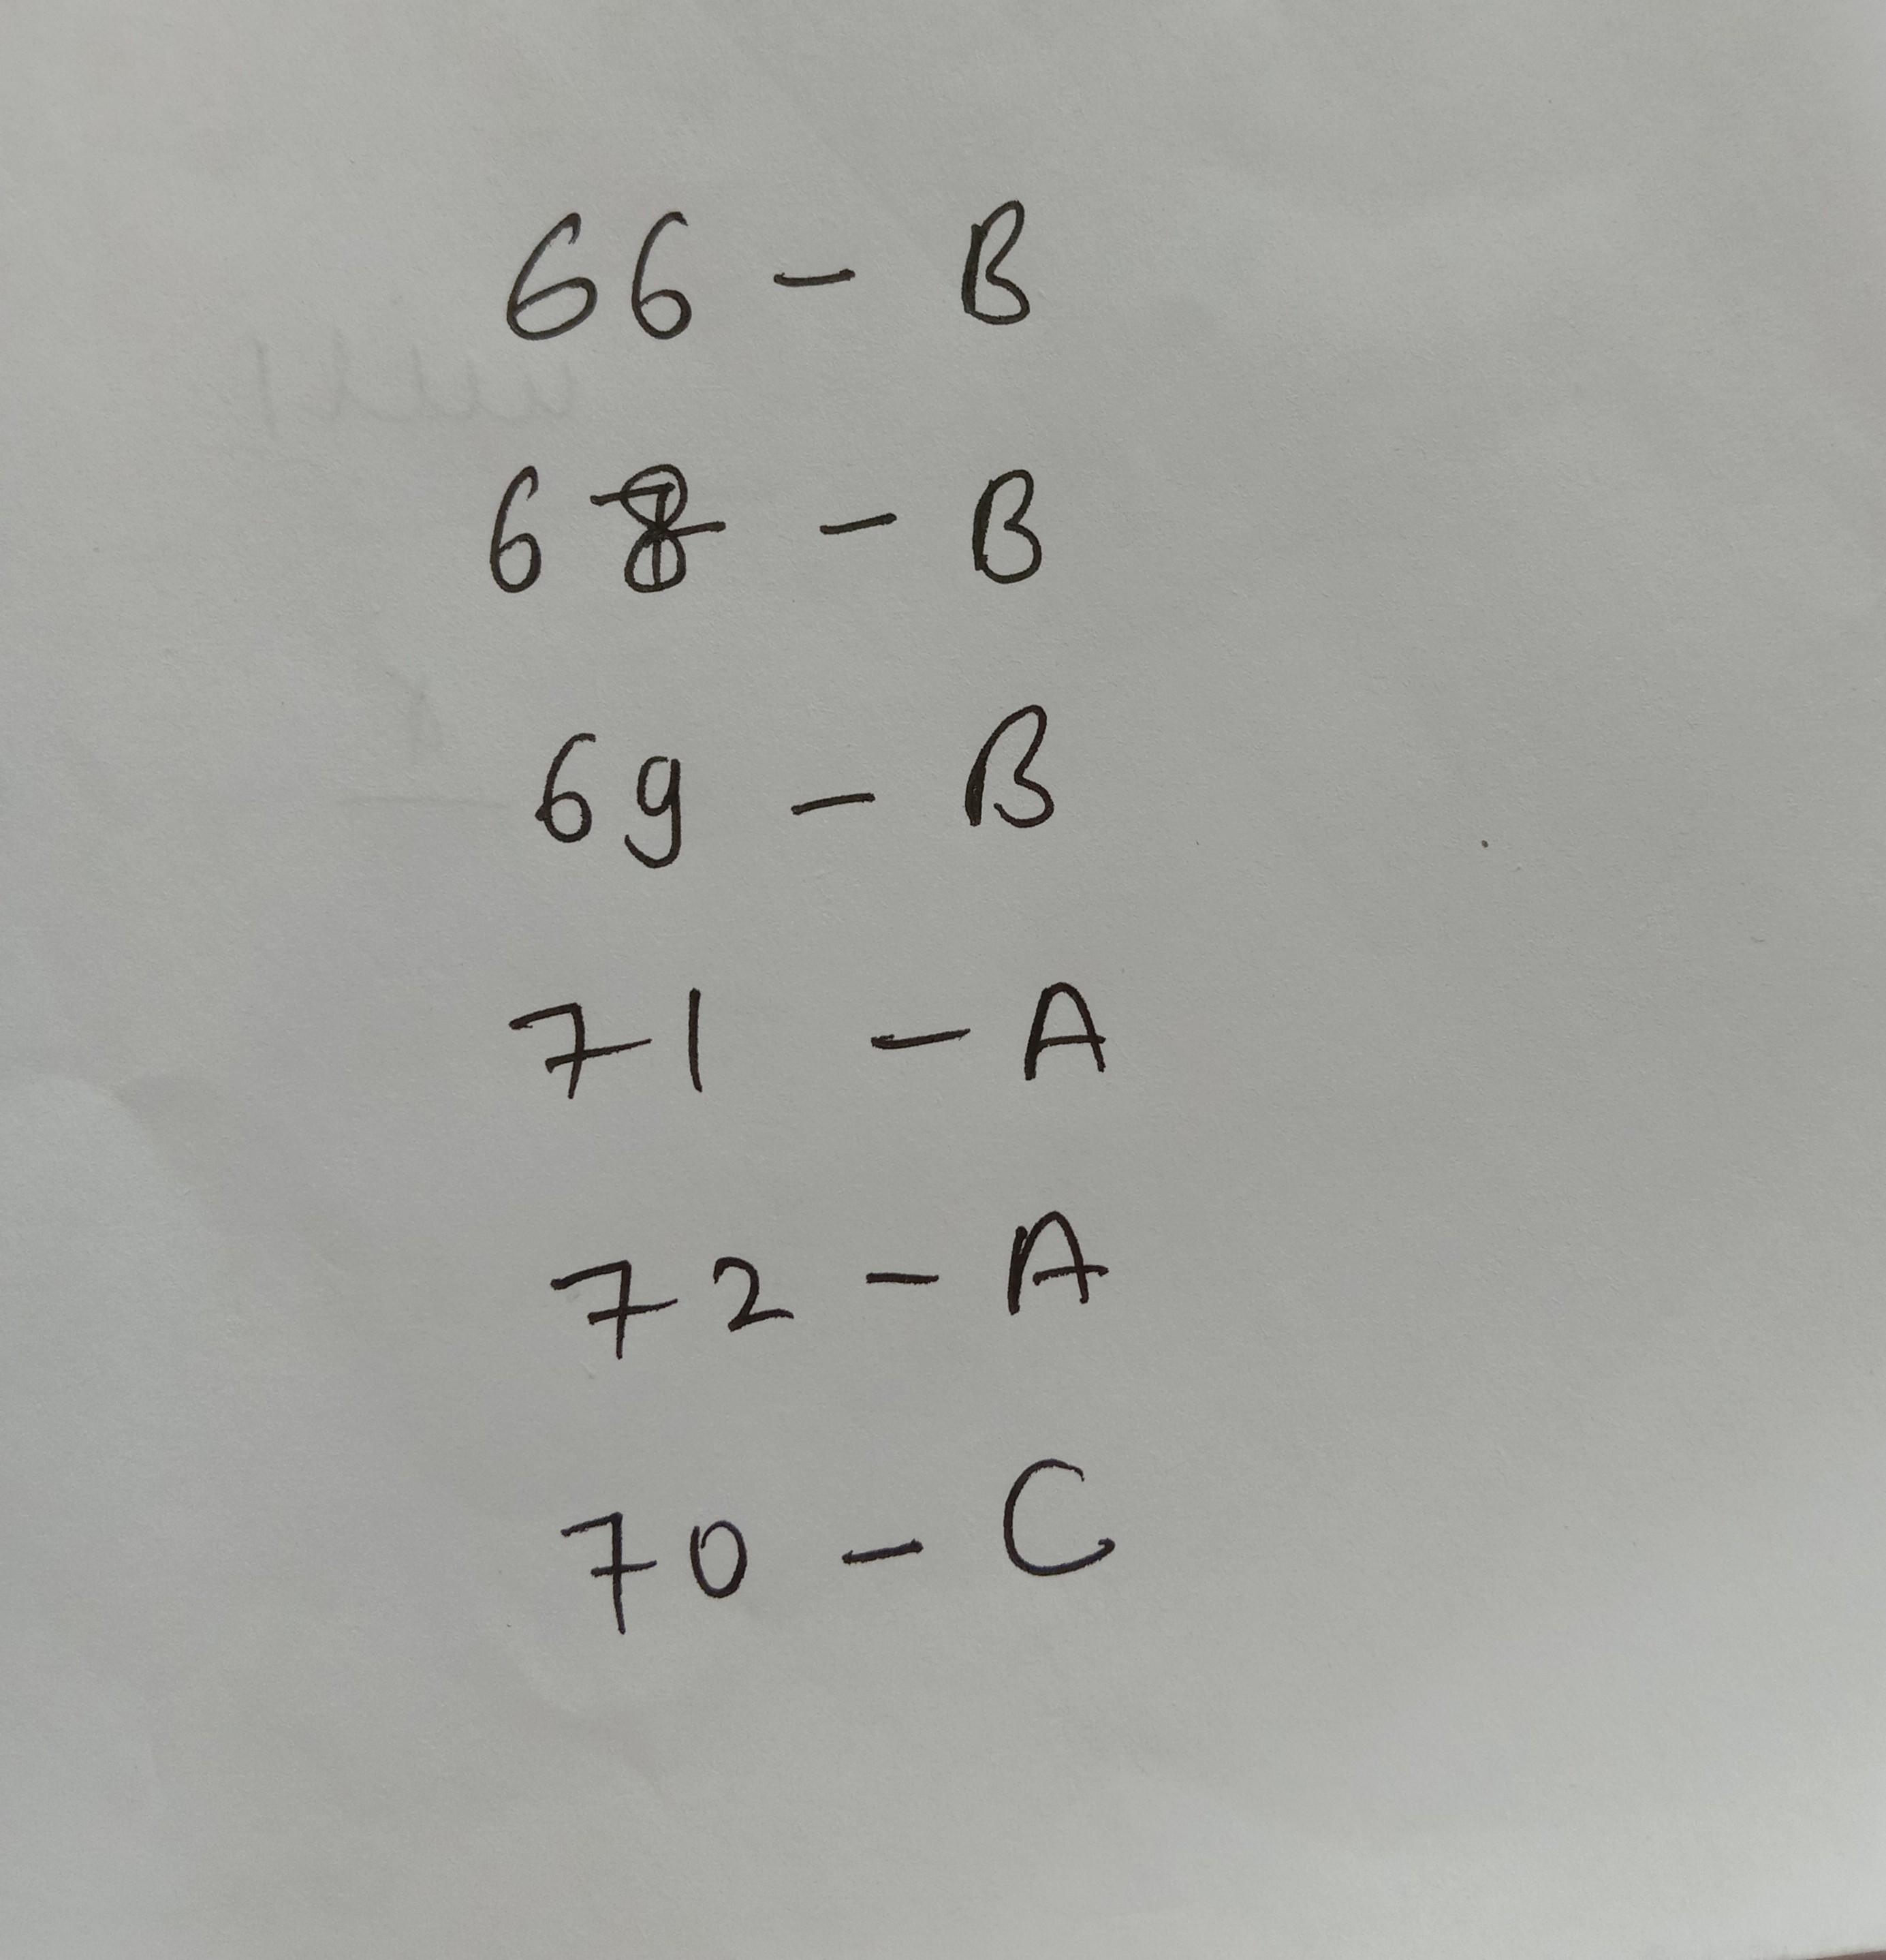 66 - B
6 - B
69 - B
71 - A
72 - A
70 - C